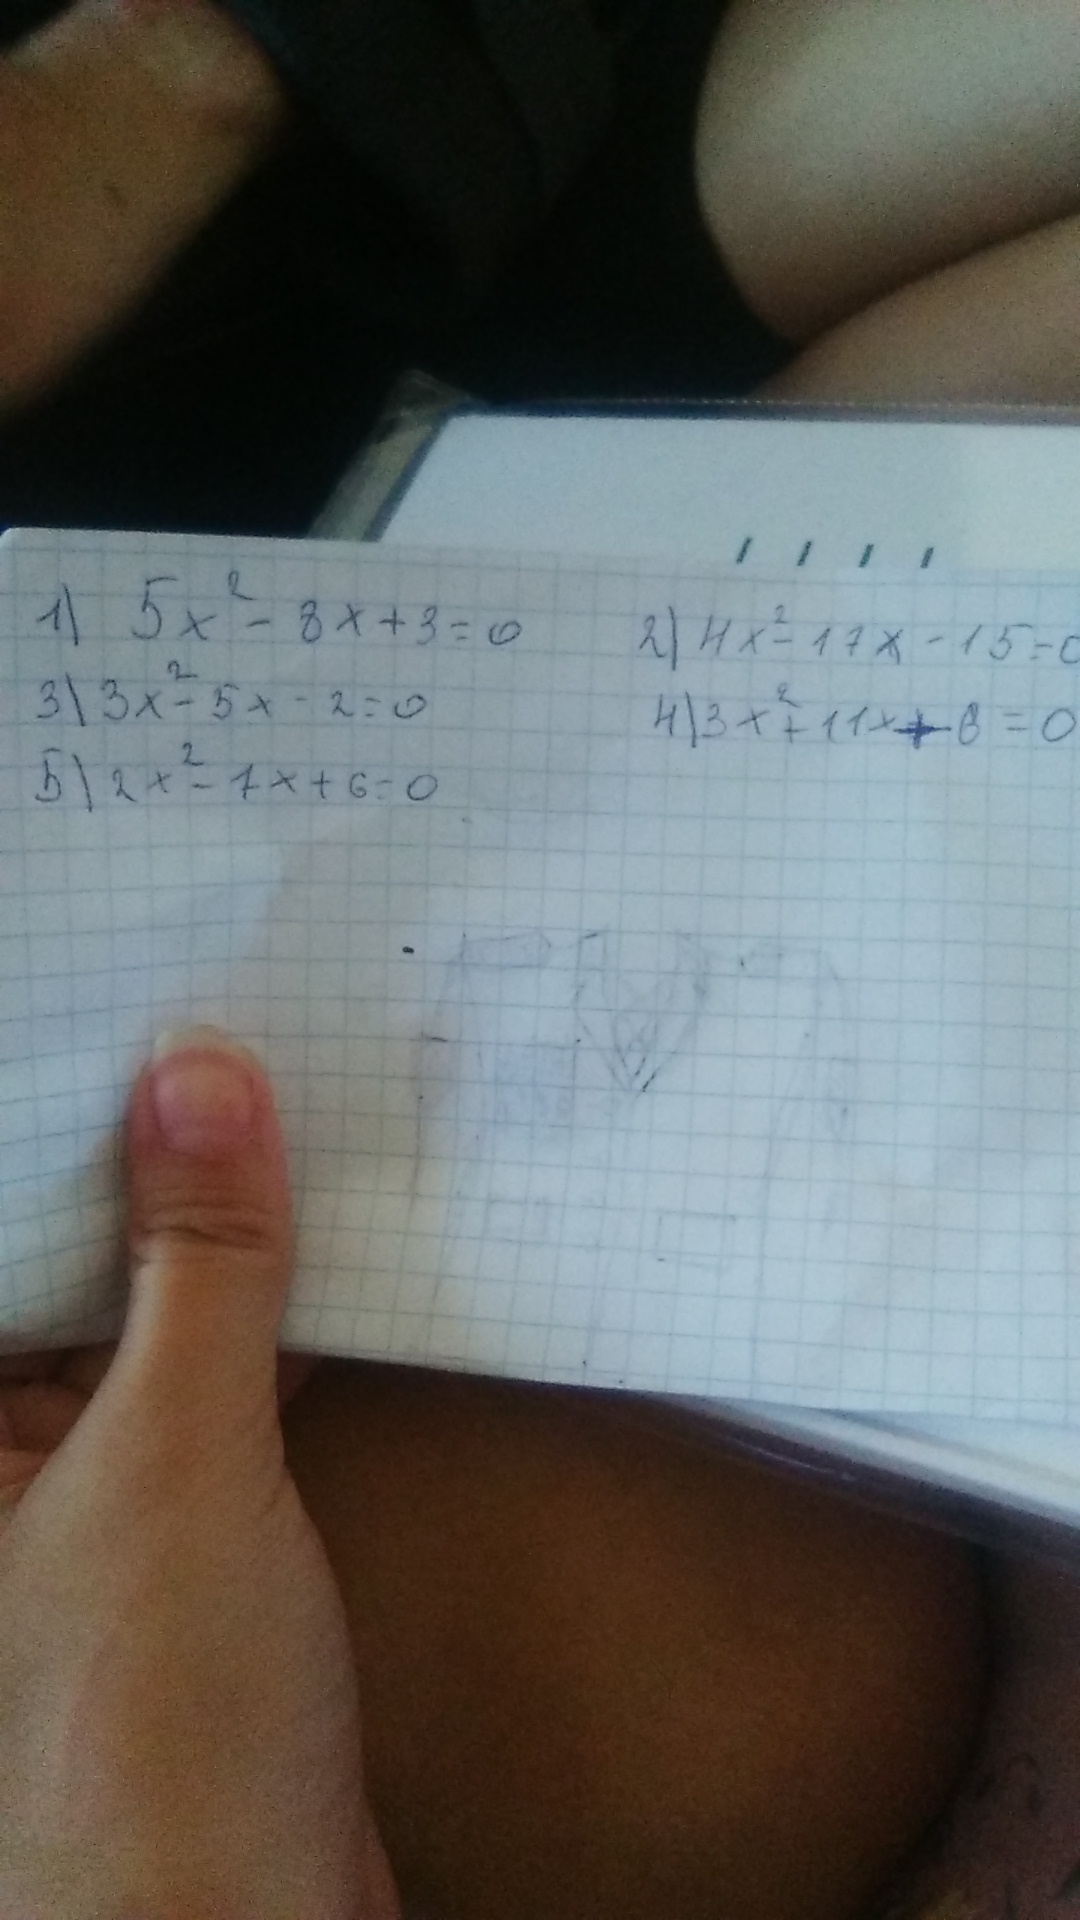 1) 5x² - 8x + 3 = 0
2) 4x² - 17x - 15 = 0
3) 3x² - 5x - 2 = 0
4) 3x² + 11x + 8 = 0
5) 2x² - 7x + 6 = 0